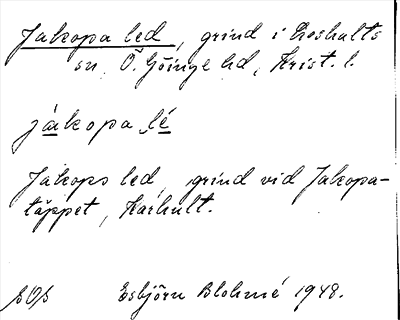 Jakopa led, grind i Loshults
sn Ö. Göinge hd, Krist. l.
jákopa lé
Jakops led, grind vid Jakopa-
täppet, Kärhult.
Esbjörn Blohmé 1948.